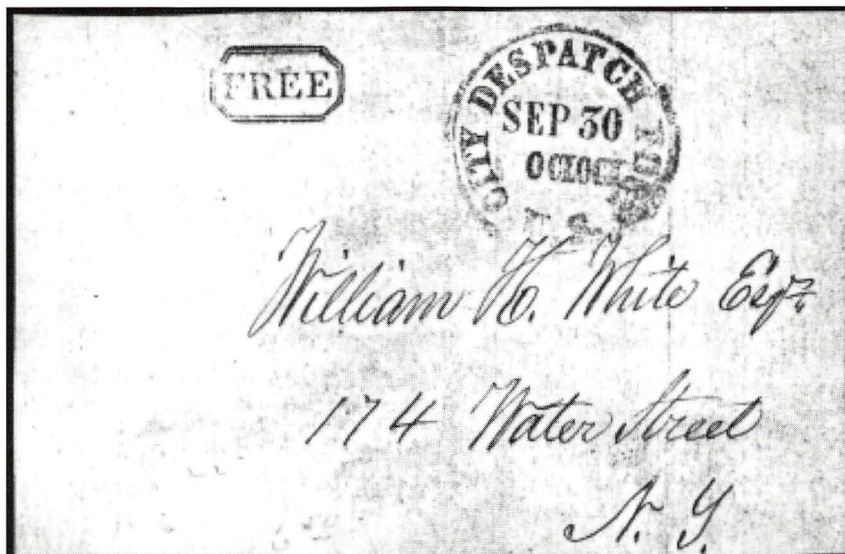 FREE
CITY DESPATCH POST
SEP 30
OCLOCK
U.S.
William H. White Esqr
174 Water Street
N. Y.